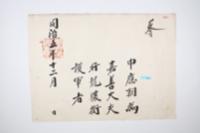 申應朝爲
嘉善大夫
行龍驤衛
護軍者
同治五年十二月 日